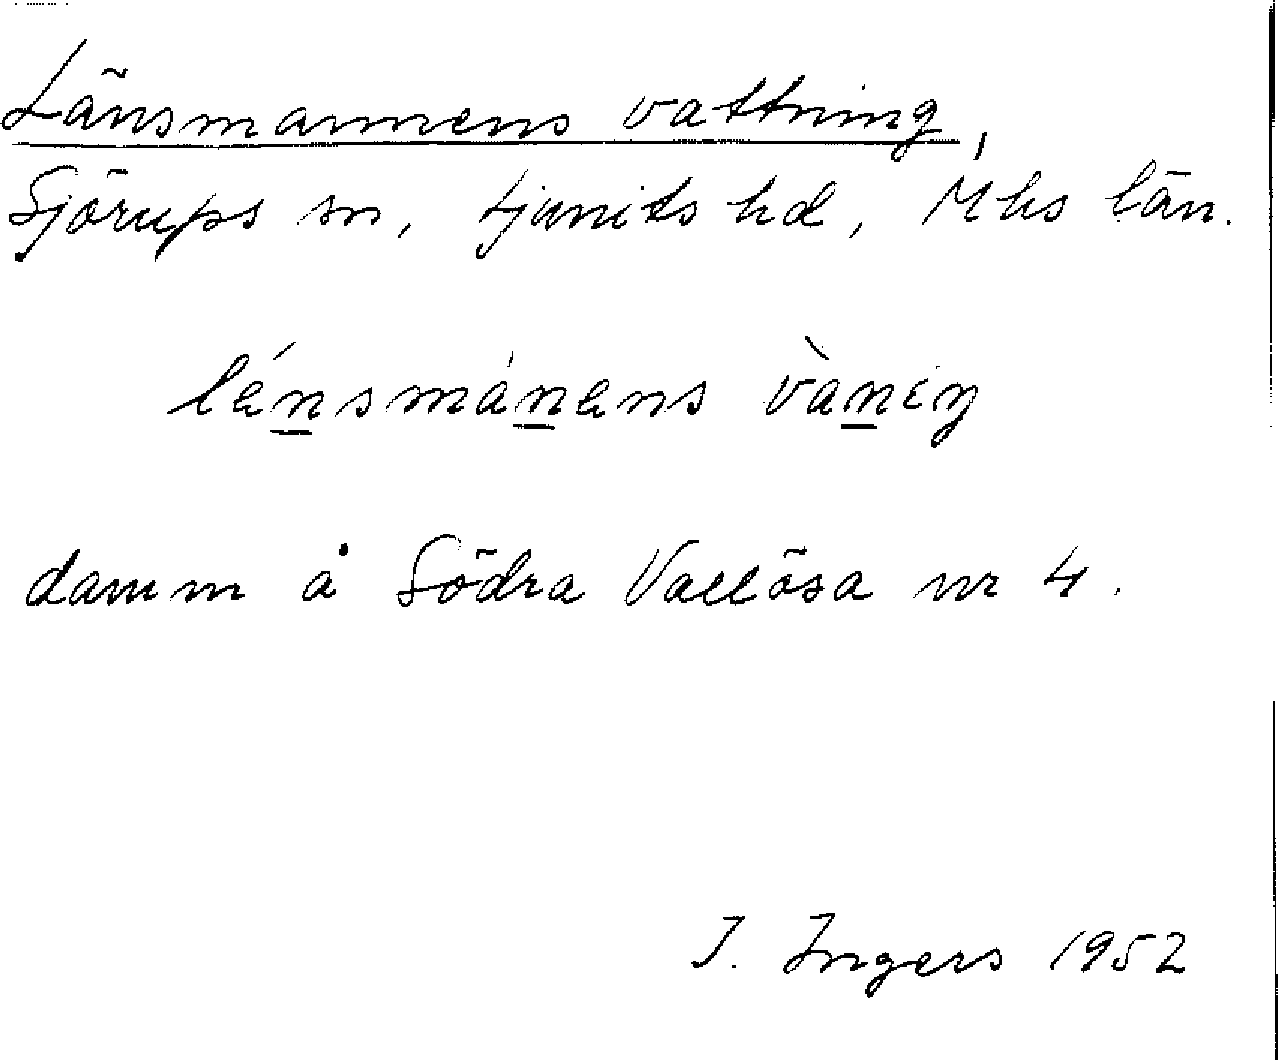 Länsmannens vattning,
Sjörups sn, Ljunits hd, Mhs län.
lénsmánens vàniŋ
damm å Södra Vallösa nr 4.
I. Ingers 1952